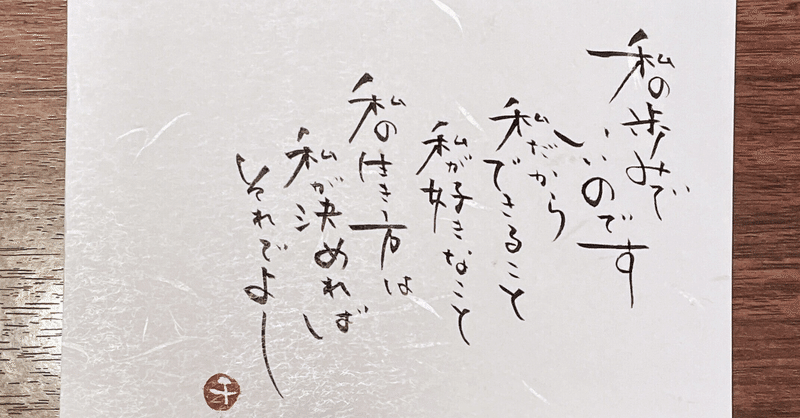 私の歩みで
いいのです
私だから
できること
私が好きなこと
私の生き方は
私が決めれば
それでよし
千